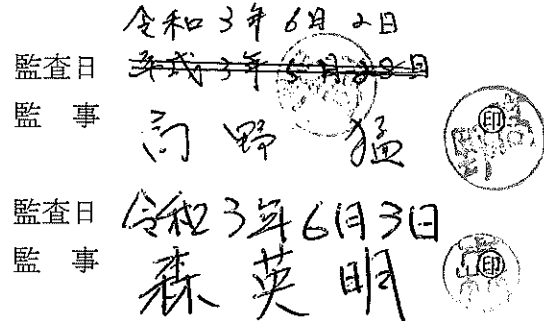 令和3年6月2日
監査日
監 事 高野 猛 印
監査日 令和3年6月3日
監 事 森 英明 印